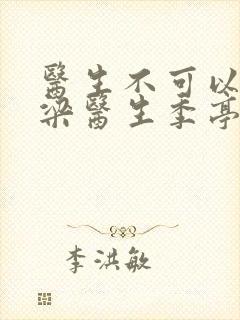 醫生不可以
梁醫生季亭
李洪敏